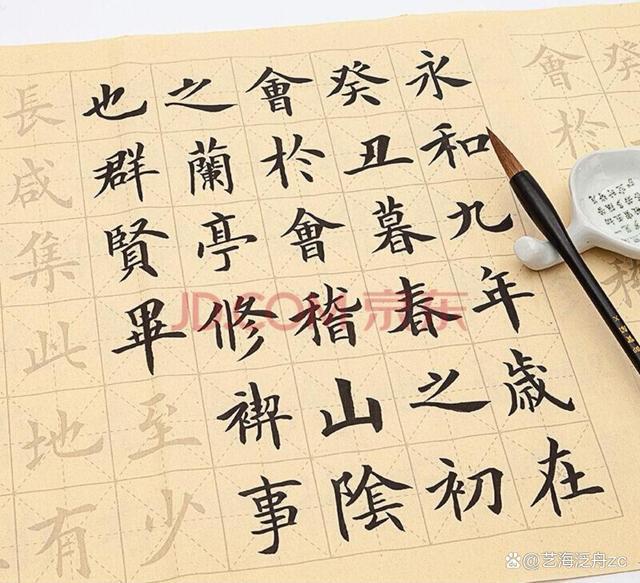 癸
會於
永和九年歲在
癸丑暮春之初
會於會稽山陰
之蘭亭修禊事
也群賢畢至少
長咸集此地有
JD.COM 京东
艺海泛舟zc